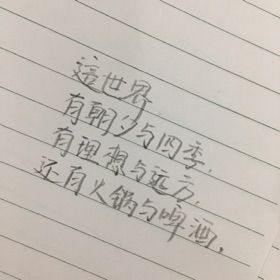 這世界,
有朝夕与四季,
有理想与远方,
还有火锅与啤酒,